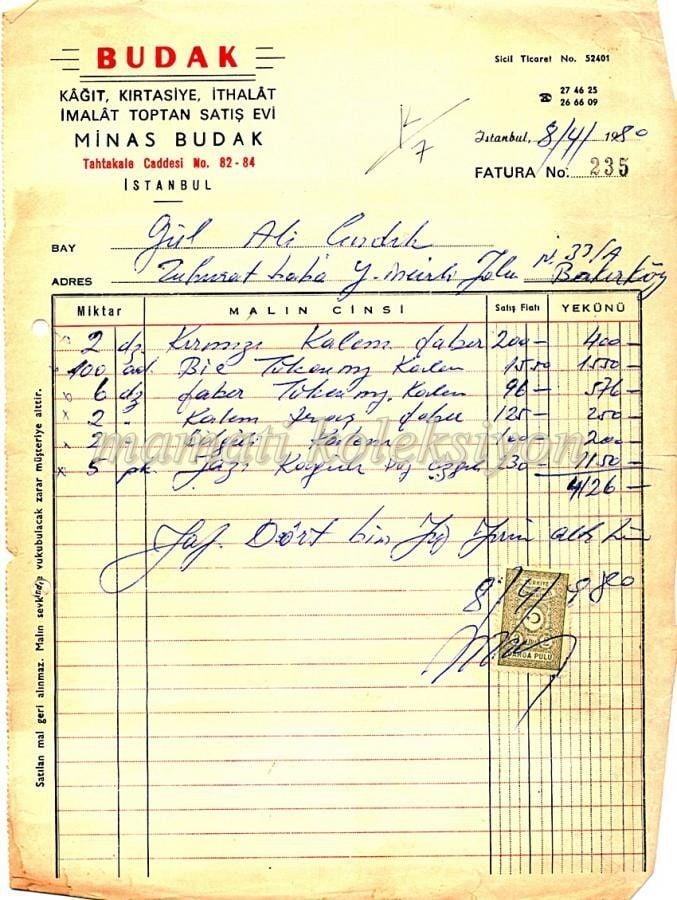 BUDAK
Sicil Ticaret No. 52401
KÂĞIT, KIRTASİYE, İTHALÂT
İMALÂT TOPTAN SATIŞ EVİ
MİNAS BUDAK
☎ 27 46 25
26 66 09
Tahtakale Caddesi No. 82-84
İSTANBUL
İstanbul, 8/4/1980
FATURA No: 235
BAY Gül Ali
ADRES Zuhurat baba Y. İncirli Yolu N. 33/A Bakırköy
Miktar MALIN CİNSİ Satış Fiatı YEKÛNÜ
2 dz Kırmızı Kalem faber 200— 400—
100 ad. Bic Tükenmz Kalem 1550 1550—
6 dz faber Tükenmz. Kalem 96— 576—
2 " Kalem faber 125— 250—
2 200—
5 pk. Yazı 230— 1150—
4126—
Yal. Dört bin Yüz Yirmi altı
8/4/980
DAMGA PULU
mamati koleksiyon
Satılan mal geri alınmaz. Malın sevkinde vukubulacak zarar müşteriye aittir.